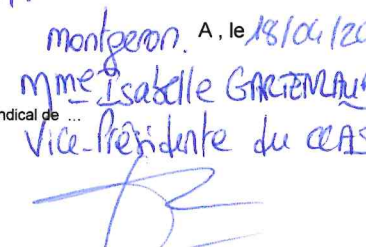 Montgeron. A , le 18/04/20
Mme Isabelle GARTENLAU
ndical de ...
Vice-Présidente du CCAS